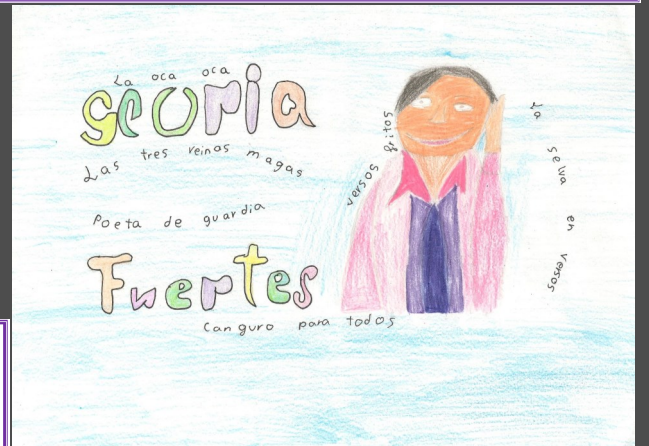 La oca oca
Gloria
Las tres reinas magas
Poeta de guardia
Fuertes
Canguro para todos
versos fritos
La selva en versos